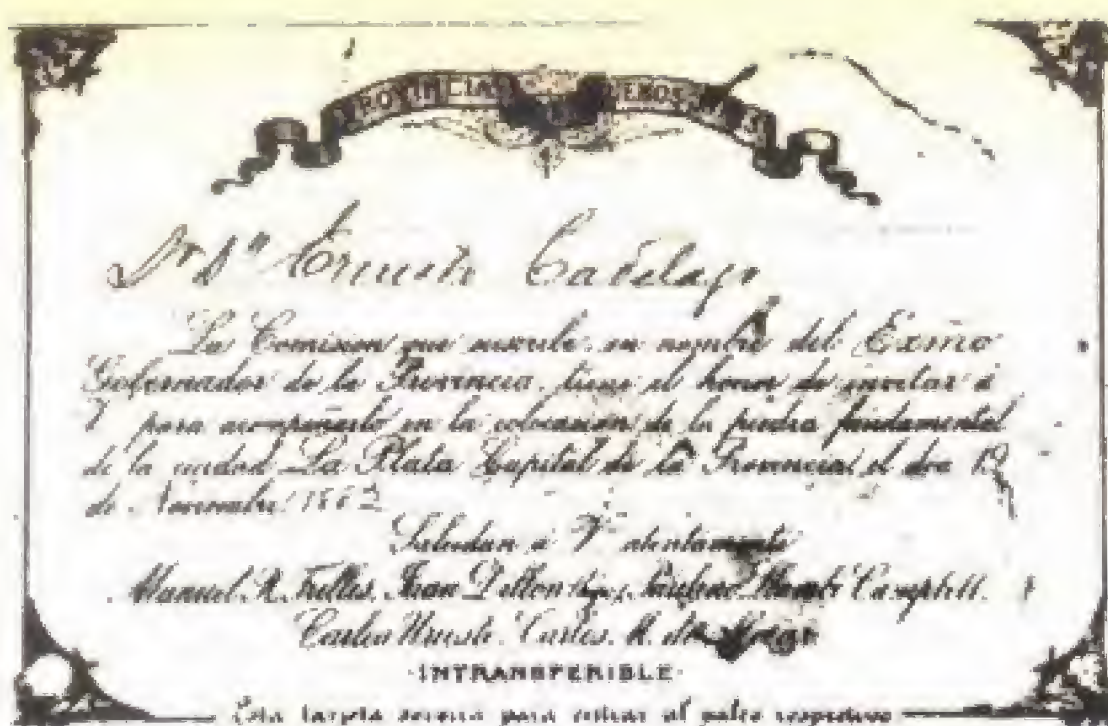 PROVINCIA BUENOS AIRES
Sr Dn Ernesto
La Comision que suscribe, en nombre del Exmo
Gobernador de la Provincia, tiene el honor de invitar á
V para acompañarlo en la colocacion de la piedra fundamental
de la ciudad La Plata Capital de la Provincia, el dia 19
de Noviembre 1882
Saludan á V atentamente
Manuel R. Trelles, Juan Dillon hijo, Campbell.
Carlos Carlos M. de
·INTRANSFERIBLE·
Esta tarjeta servirá para entrar al palco respectivo